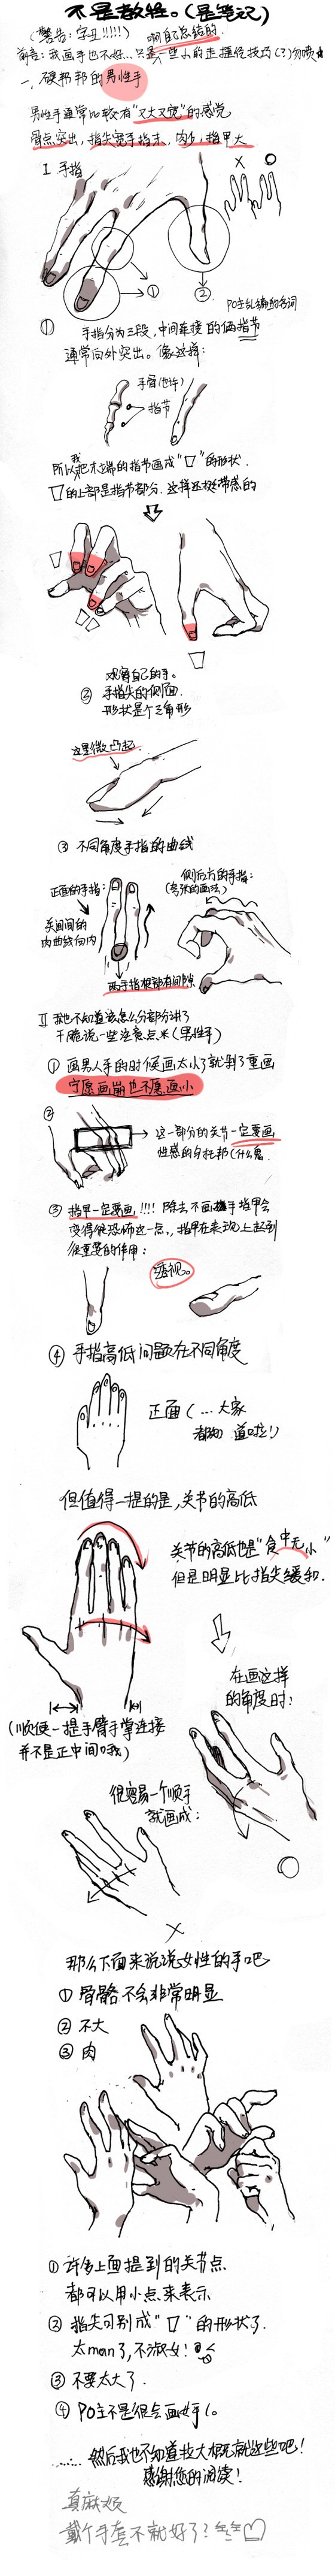 不是教程。(是笔记)
(警告:字丑!!!!!) 啊自己总结的.
前言:我画手也不好...只是一些小的走捷径技巧(?)勿喷★
一、硬邦邦的男性手
男性手通常比较有“又大又宽”的感觉
骨点突出,指尖宽手指末,肉少,指甲大
I 手指
① ②
PO主乱编的名词
① 手指分为三段,中间连接的俩指节
通常向外突出。像这样:
手骨(也许)
指节
所以我把末端的指节画成“▽”的形状.
▽的上部是指节部分.这样还挺带感的
观察自己的手。
② 手指尖的侧面.
形状是个三角形
这里微凸起.
③ 不同角度手指的曲线
正面的手指:
关节间的
内曲线向内
侧后方的手指:
(夸张的画法)
两手指根部有间隙
II 我也不知道该怎么分部分讲了
干脆说一些注意点米(男性手)
① 画男人手的时候画太小了就剁了重画
宁愿画崩也不愿画小
② 这一部分的关节一定要画
性感的乌托邦(什么鬼
③ 指甲一定要画!!!!除去不画指甲会
变得很恐怖这一点,,指甲在表现上起到
很重要的作用:
透视。
④ 手指高低问题在不同角度
正面(...大家
都知道啦!)
但值得一提的是,关节的高低
关节的高低也是“食中无小”
但是明显比指尖缓和.
(顺便一提手臂手掌连接
并不是正中间哦)
在画这样
的角度时:
很容易一个顺手
就画成:
那么下面来说说女性的手吧
① 骨骼不会非常明显
② 不大
③ 肉
① 许多上面提到的关节点
都可以用小点来表示
② 指尖可别成“▽”的形状了.
太man了,不淑女!
③ 不要太大了.
④ PO主不是很会画女手!。
...... 然后我也不知道扯大概就这些吧!
感谢您的阅读!
真麻烦
戴个手套不就好了?